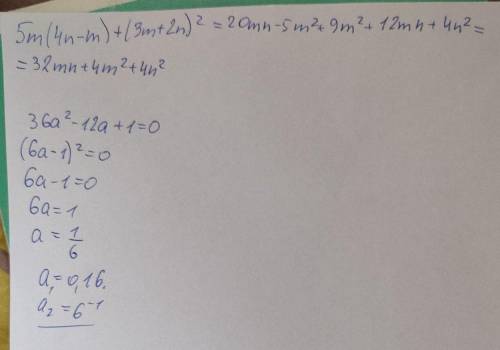 5m(4n-m)+(3m+2n)² = 20mn-5m²+9m²+12mn+4n²=
=32mn+4m²+4n²
36a²-12a+1=0
(6a-1)²=0
6a-1=0
6a=1
a = 1/6
a₁=0,16.
a₂=6⁻¹